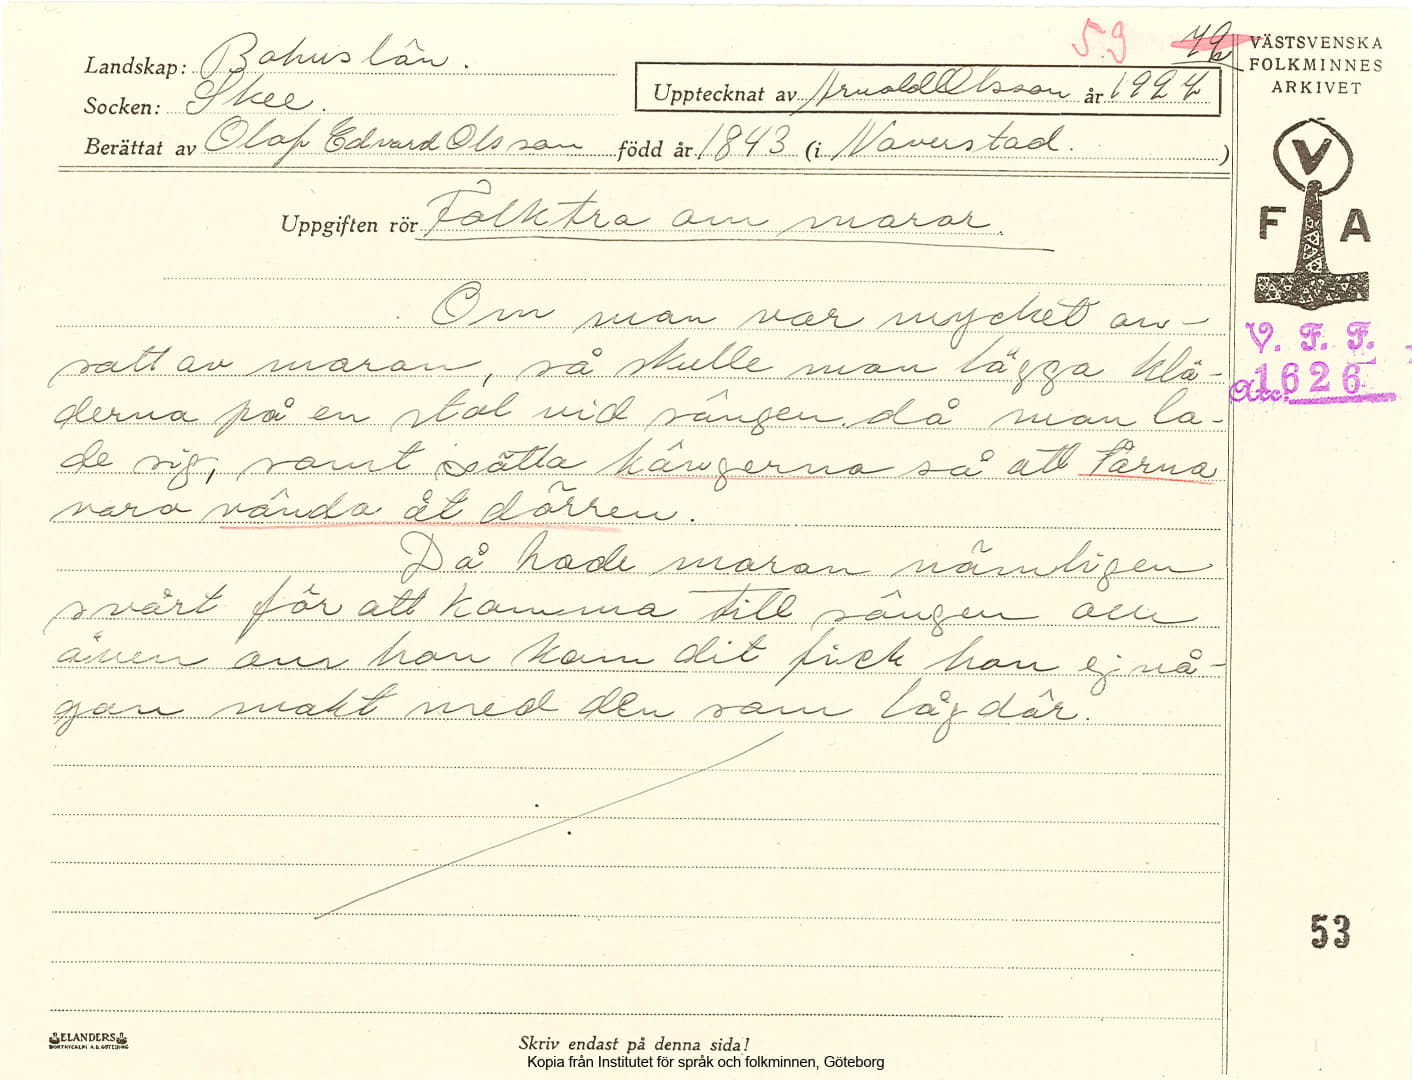 59
VÄSTSVENSKA
FOLKMINNES
ARKIVET
Landskap: Bohuslän.
Socken: Skee.
Upptecknat av Arnold Olsson år 1924
Berättat av Olof Edvard Olsson född år 1843 (i Naverstad.)
Uppgiften rör Folktro om maror.
V
F A
V. F. F.
Acc. 1626
Om man var mycket an-
satt av maran, så skulle man lägga klä-
derna på en stol vid sängen då man la-
de sig, samt sätta kängerna så att tårna
voro vända åt dörren.
Då hade maran nämligen
svårt för att komma till sängen och
även om hon kom dit fick hon ej nå-
gon makt med den som låg där.
53
ELANDERS
BOKTRYCKERI A.B. GÖTEBORG
Skriv endast på denna sida!
Kopia från Institutet för språk och folkminnen, Göteborg